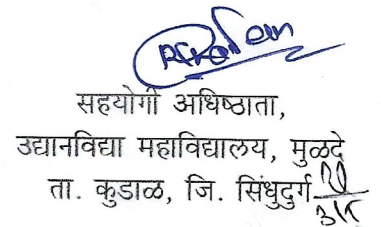 सहयोगी अधिष्ठाता,
उद्यानविद्या महाविद्यालय, मुळदे
ता. कुडाळ, जि. सिंधुदुर्ग